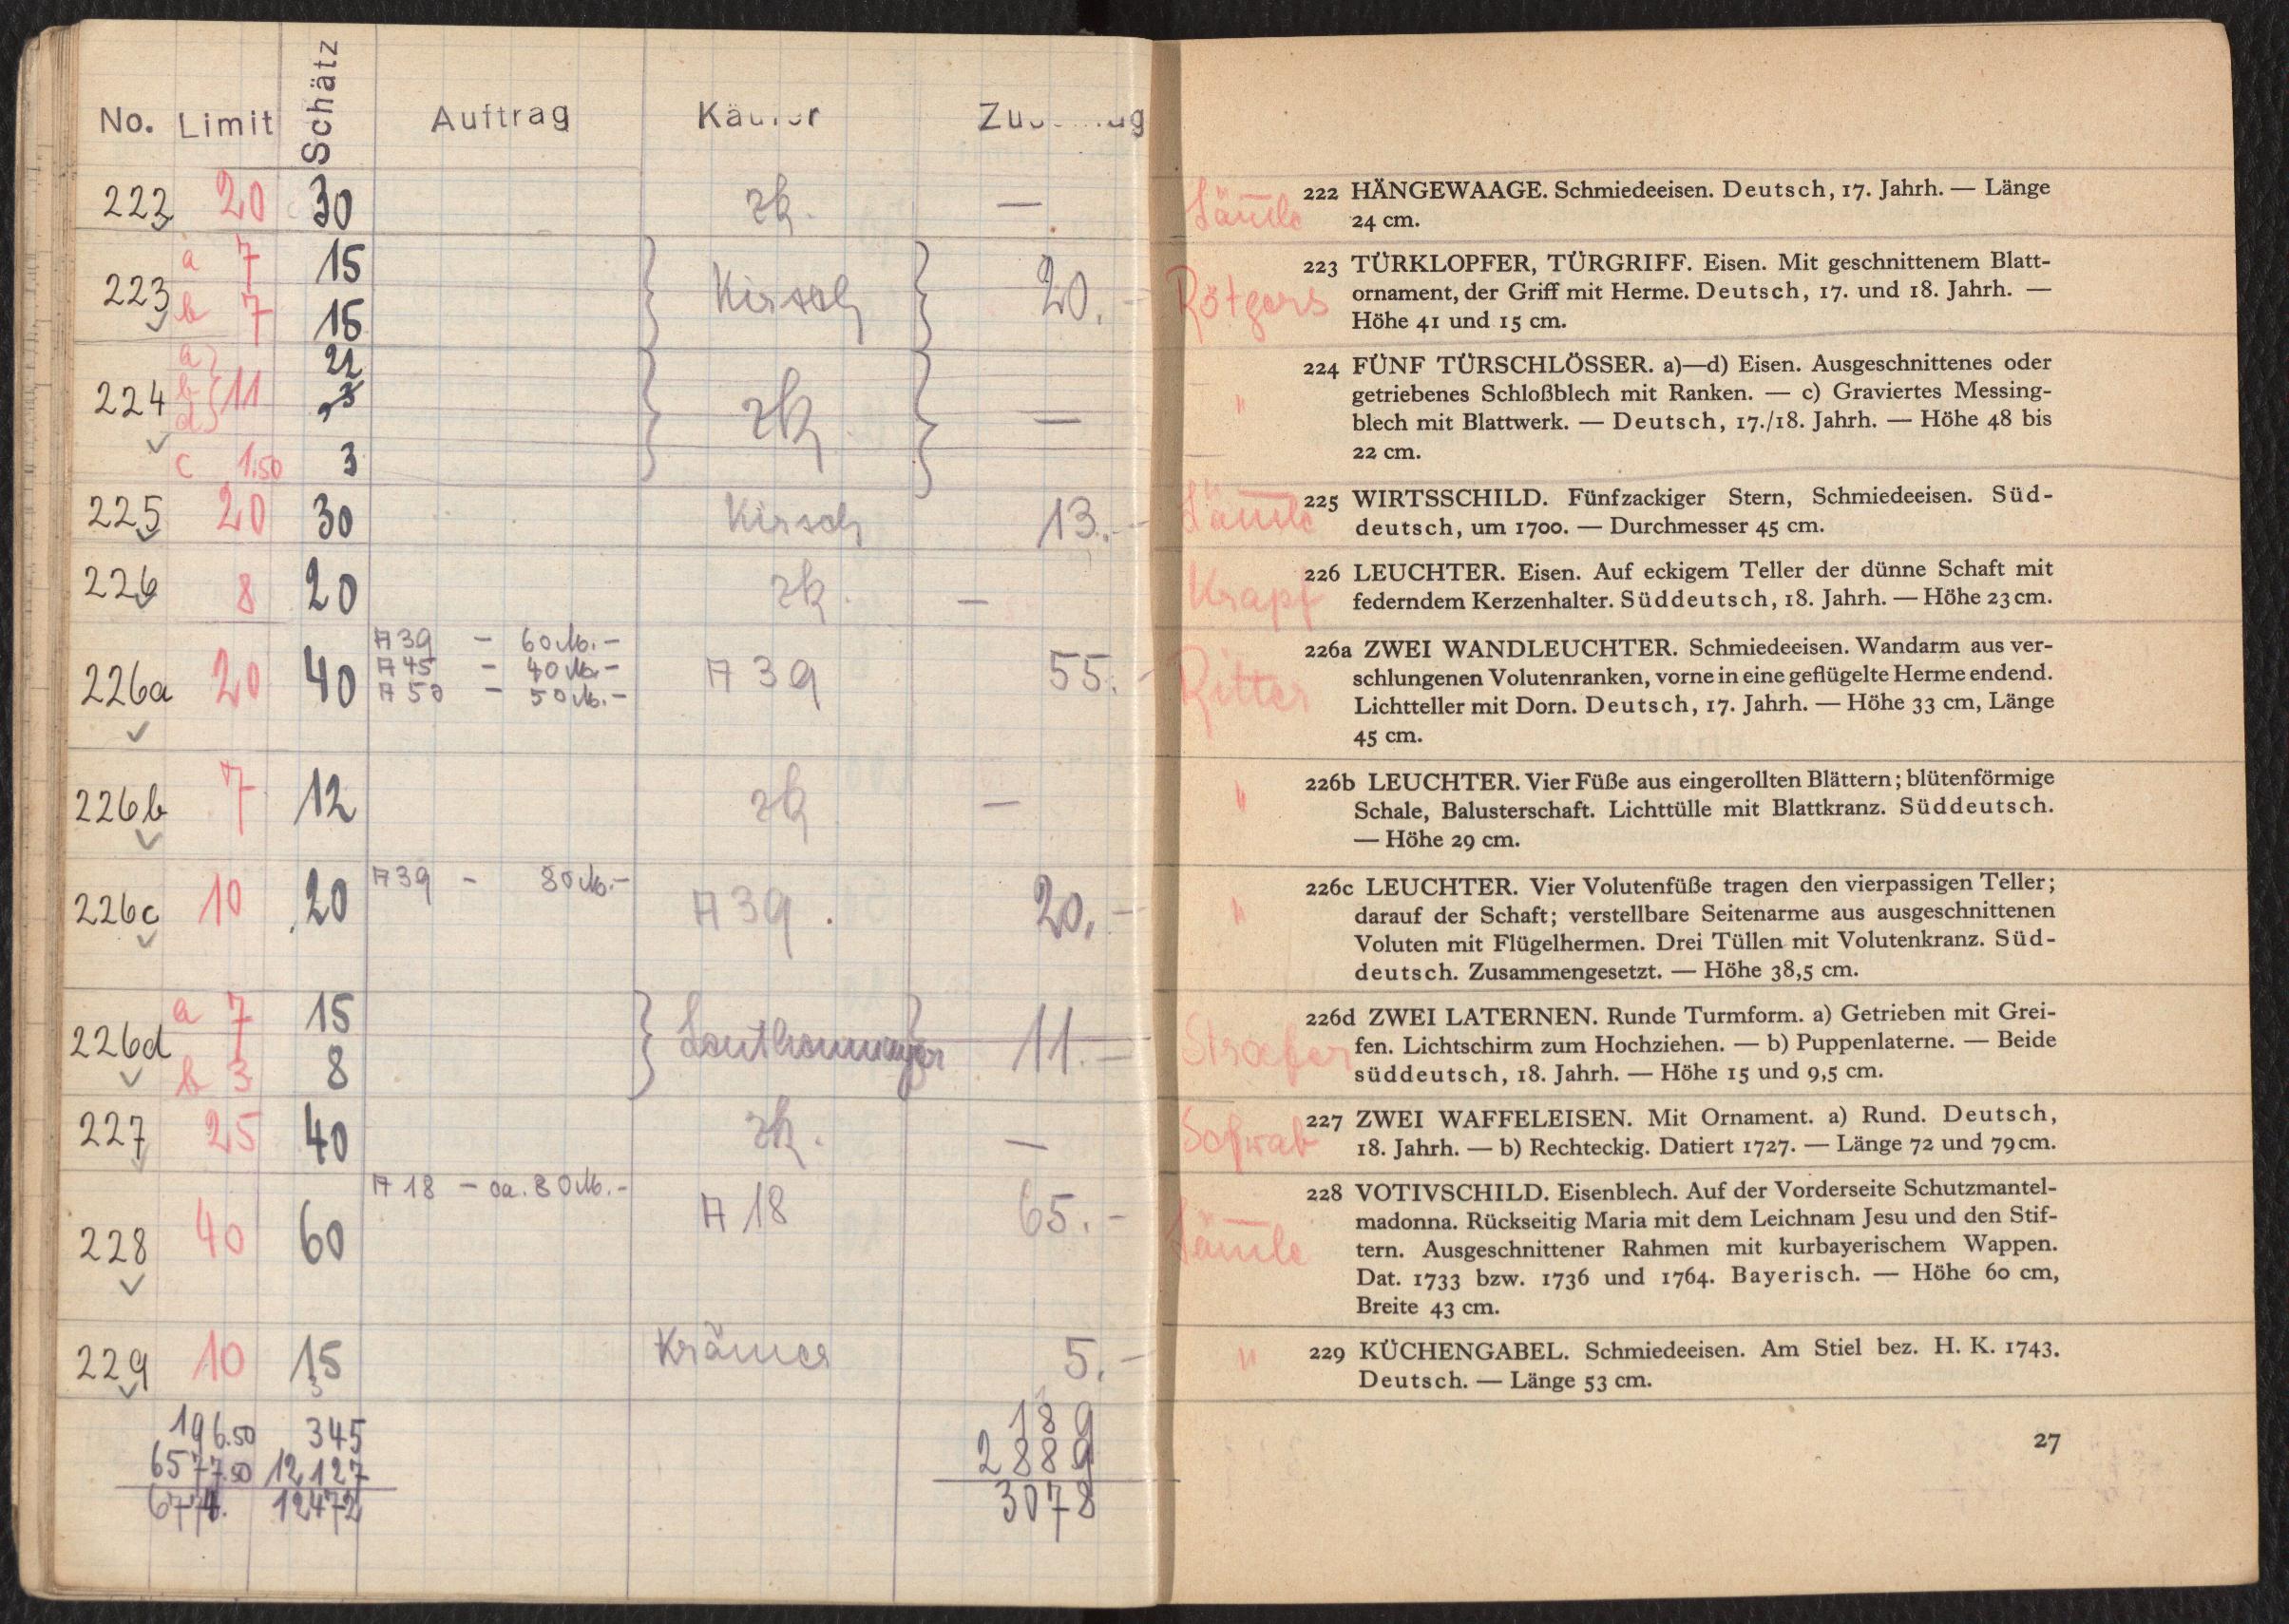 No. Limit Schätz Auftrag Käufer Zuschlag
222 20 30 zk. —
223 a 7 15 Kirsch 20.-
b 7 15
224 a b d 11 22 zk —
c 1.50 3
225 20 30 Kirsch 13.-
226 8 20 zk. —
A 39 - 60 M.-
A 45 - 40 M.-
A 50 - 50 M.-
226a 20 40 A 39 55.-
226b 7 12 zk —
226c 10 20 A 39 - 80 M.- A 39. 20.-
226d a 7 15 11.-
b 3 8
227 25 40 zk. —
228 40 60 A 18 - ca. 80 M.- A 18 65.-
229 10 15 Krämer 5.-
196.50 345 189
6577.50 12127 2889
6774. 12472 3078
Sämle
222 HÄNGEWAAGE. Schmiedeeisen. Deutsch, 17. Jahrh. — Länge
24 cm.
Rötgers
223 TÜRKLOPFER, TÜRGRIFF. Eisen. Mit geschnittenem Blatt-
ornament, der Griff mit Herme. Deutsch, 17. und 18. Jahrh. —
Höhe 41 und 15 cm.
"
224 FÜNF TÜRSCHLÖSSER. a)—d) Eisen. Ausgeschnittenes oder
getriebenes Schloßblech mit Ranken. — c) Graviertes Messing-
blech mit Blattwerk. — Deutsch, 17./18. Jahrh. — Höhe 48 bis
22 cm.
Sämle
225 WIRTSSCHILD. Fünfzackiger Stern, Schmiedeeisen. Süd-
deutsch, um 1700. — Durchmesser 45 cm.
Krapf
226 LEUCHTER. Eisen. Auf eckigem Teller der dünne Schaft mit
federndem Kerzenhalter. Süddeutsch, 18. Jahrh. — Höhe 23 cm.
Ritter
226a ZWEI WANDLEUCHTER. Schmiedeeisen. Wandarm aus ver-
schlungenen Volutenranken, vorne in eine geflügelte Herme endend.
Lichtteller mit Dorn. Deutsch, 17. Jahrh. — Höhe 33 cm, Länge
45 cm.
"
226b LEUCHTER. Vier Füße aus eingerollten Blättern; blütenförmige
Schale, Balusterschaft. Lichttülle mit Blattkranz. Süddeutsch.
— Höhe 29 cm.
"
226c LEUCHTER. Vier Volutenfüße tragen den vierpassigen Teller;
darauf der Schaft; verstellbare Seitenarme aus ausgeschnittenen
Voluten mit Flügelhermen. Drei Tüllen mit Volutenkranz. Süd-
deutsch. Zusammengesetzt. — Höhe 38,5 cm.
Straefer
226d ZWEI LATERNEN. Runde Turmform. a) Getrieben mit Grei-
fen. Lichtschirm zum Hochziehen. — b) Puppenlaterne. — Beide
süddeutsch, 18. Jahrh. — Höhe 15 und 9,5 cm.
Schwab
227 ZWEI WAFFELEISEN. Mit Ornament. a) Rund. Deutsch,
18. Jahrh. — b) Rechteckig. Datiert 1727. — Länge 72 und 79 cm.
Sämle
228 VOTIVSCHILD. Eisenblech. Auf der Vorderseite Schutzmantel-
madonna. Rückseitig Maria mit dem Leichnam Jesu und den Stif-
tern. Ausgeschnittener Rahmen mit kurbayerischem Wappen.
Dat. 1733 bzw. 1736 und 1764. Bayerisch. — Höhe 60 cm,
Breite 43 cm.
"
229 KÜCHENGABEL. Schmiedeeisen. Am Stiel bez. H. K. 1743.
Deutsch. — Länge 53 cm.
27